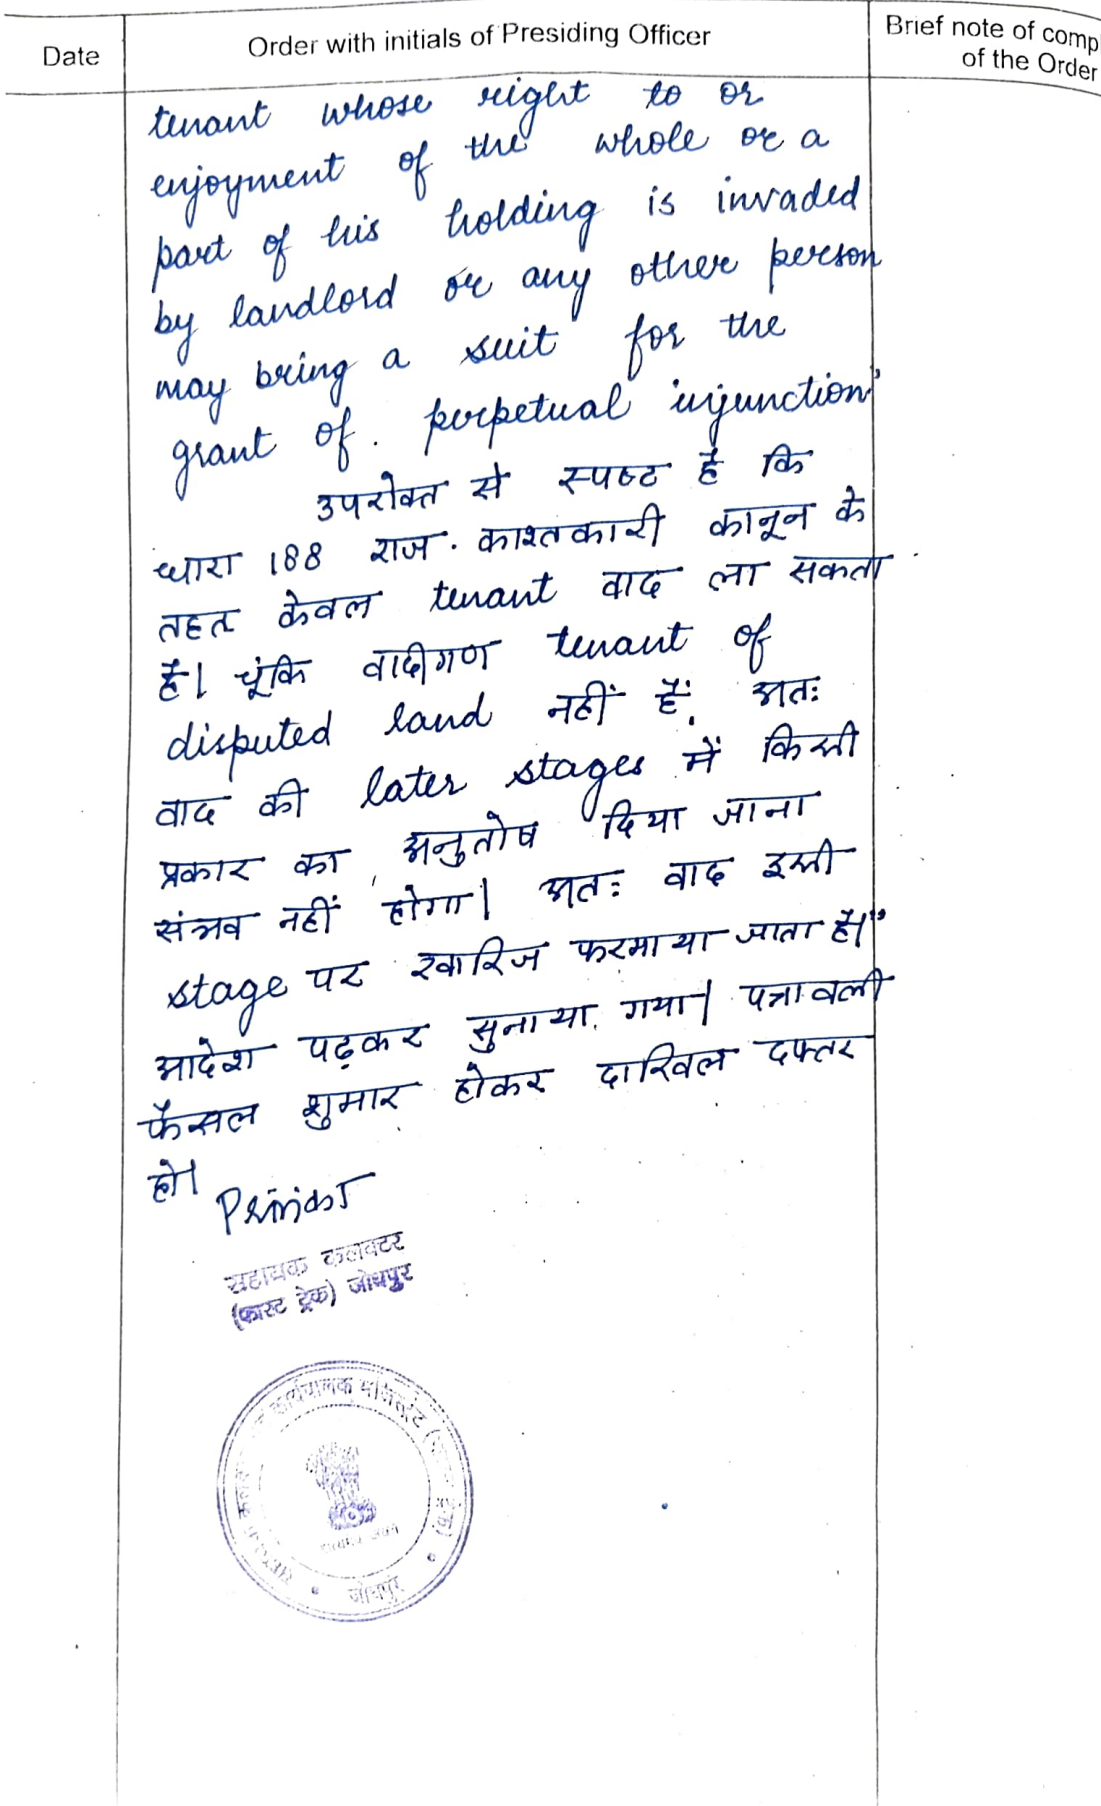 Date
Order with initials of Presiding Officer
Brief note of comp
of the Order
tenant whose right to or
enjoyment of the whole or a
part of his holding is invaded
by landlord or any other person
may bring a suit for the
grant of. perpetual injunction"
उपरोक्त से स्पष्ट है कि
धारा 188 राज. काश्तकारी कानून के
तहत केवल tenant वाद ला सकता
है। चूंकि वादीगण tenant of
disputed land नहीं हैं, अतः
वाद की later stages में किसी
प्रकार का अनुतोष दिया जाना
संभव नहीं होगा। अतः वाद इसी
stage पर खारिज फरमाया जाता है।"
आदेश पढ़कर सुनाया गया। पत्रावली
फैसल शुमार होकर दाखिल दफ्तर
हो।
सहायक कलक्टर
(फास्ट ट्रेक) जोधपुर
कार्यपालक मजिस्ट्रेट
जोधपुर